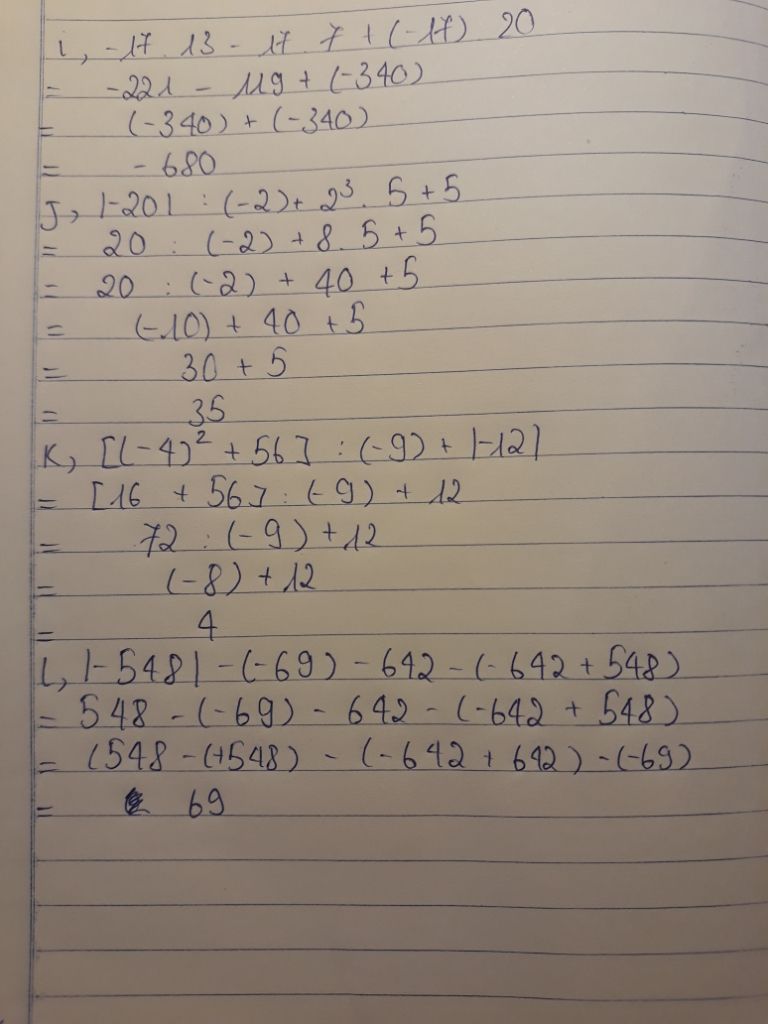 i, -17 . 13 - 17 . 7 + (-17) . 20
= -221 - 119 + (-340)
= (-340) + (-340)
= - 680
J, |-20| : (-2) + 2³ . 5 + 5
= 20 : (-2) + 8 . 5 + 5
= 20 : (-2) + 40 + 5
= (-10) + 40 + 5
= 30 + 5
= 35
K, [(-4)² + 56] : (-9) + |-12|
= [16 + 56] : (-9) + 12
= 72 : (-9) + 12
= (-8) + 12
= 4
l, |-548| - (-69) - 642 - (-642 + 548)
= 548 - (-69) - 642 - (-642 + 548)
= (548 - (+548) - (-642 + 642) - (-69)
= 69